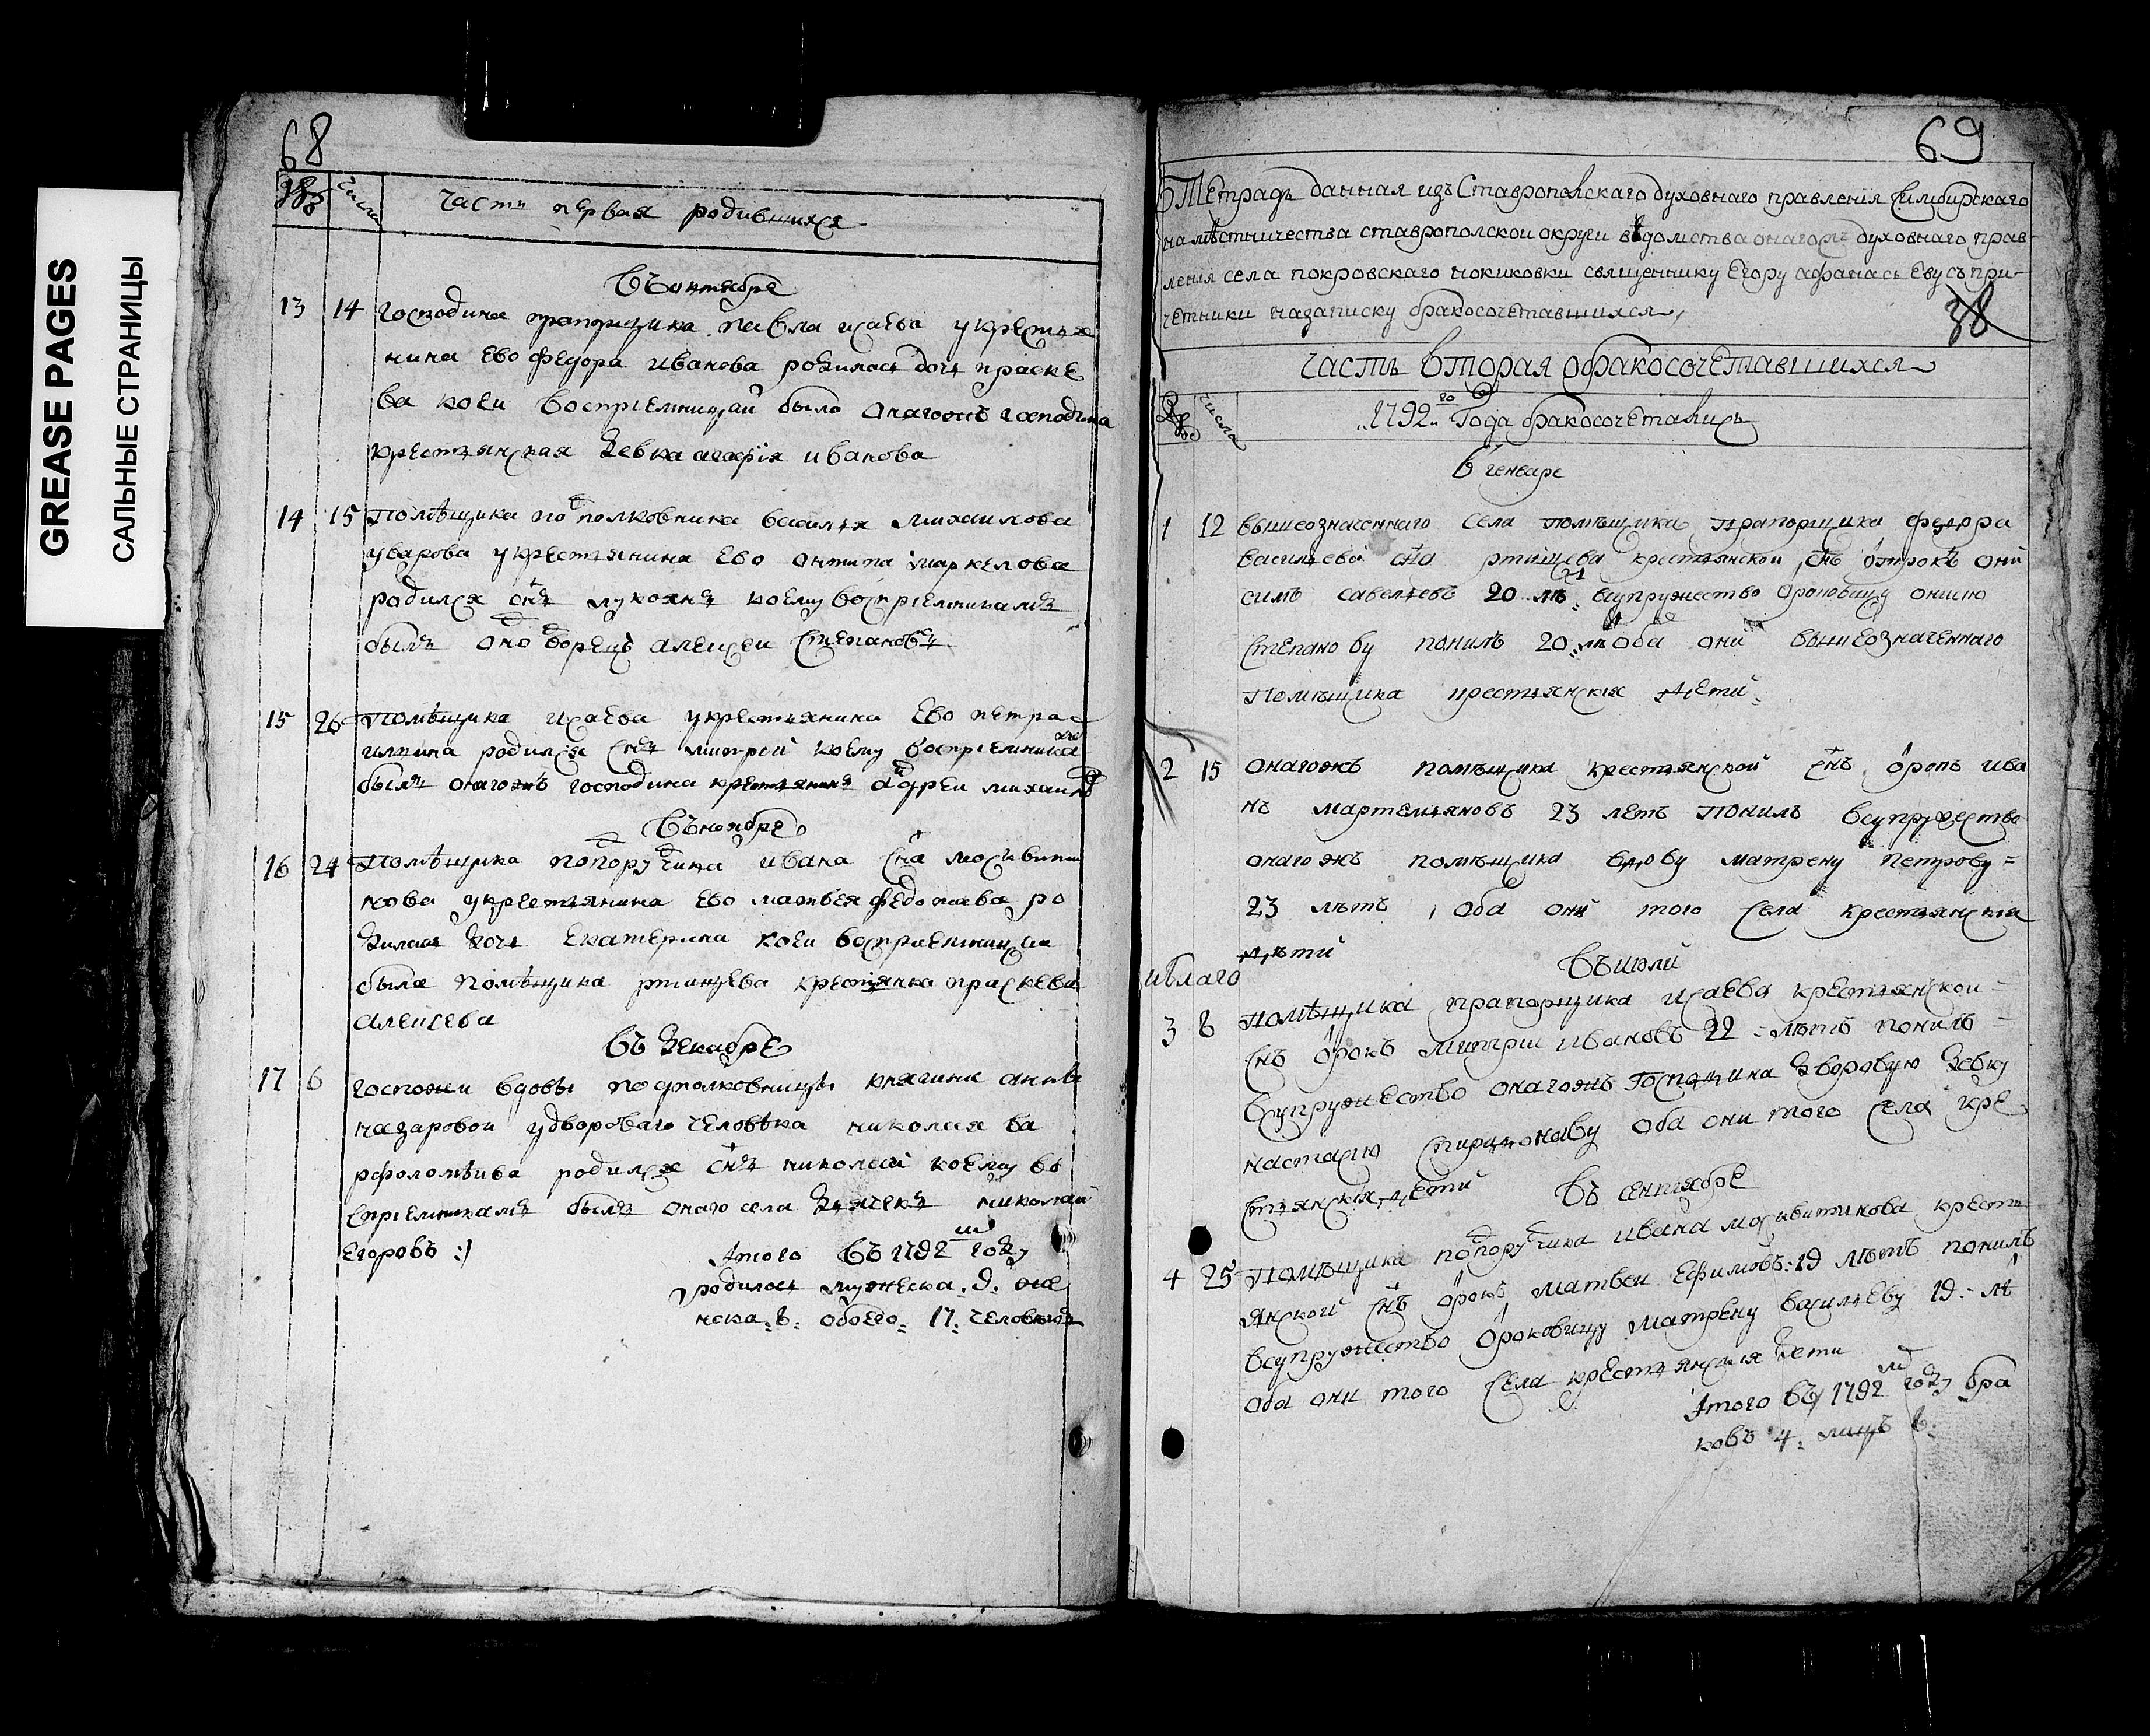 GREASE PAGES
САЛЬНЫЕ СТРАНИЦЫ
68
числа
часть первая родившихся
въ октябре
13 14 господина прапорщика павла исаева у крестья
нина ево федора иванова родилась дочь праске
ва коеи восприемницаи было онагожъ господина
крестьянская девка агафiя иванова
14 15 Помѣщика подполковника василья михаилова
уварова у крестьянина ево антипа маркелова
родился снъ лукоянъ коему восприемникамъ
былъ Степановъ
15 26 Помѣщика исаева у крестьянина ево петра
родился снъ митрей коему восприемникамъ
былъ онагожъ господина крестьянинъ андреи михаиловъ
въ ноябре
16 24 Помѣщика подпоручика ивана сна москвити
нова у крестьянина ево матвея федотава ро
дилась дочь екатерина коеи восприемницаи
была помѣщика ртищева крестьянка праскева
алексева
въ декабре
17 6 госпожи вдовы подполковницы княгини анны
назаровои у двороваго человѣка николая ва
рфоломѣива родился снъ николаи коему во
сприемникамъ былъ онаго села дьячекъ николаи
Егоровъ :)
Итого въ 1792 м году
родилось мужеска 9 же
нска 8 обоего 17 человѣкъ
69
Тетрадь данная изъ Ставропольскаго духовнаго правленiя Симбирскаго
намѣстничества ставрополскои округи вѣдомства онагожъ духовнаго прав-
ленiя села покровскаго священнику Егору афанасьеву съ при-
четники на записку бракосочетавшихся,
38
часть вторая о бракосочетавшихся
числа
1792 го Года бракосочетались
В генваре
1 12 вышеозначеннаго села помѣщика прапорщика федора
васильева сна ртищева крестьянскои снъ отрокъ они
симъ савельевъ 20 лѣ: в супружество отроковицу
Степанову понилъ 20 лѣ оба они вышеозначеннаго
Помѣщика крестьянскiя дети
2 15 онагожъ помѣщика крестьянской снъ отрокъ ива
нъ мартемьяновъ 23 летъ понилъ в супружество
онагожъ помѣщика вдову матрену петрову =
23 лѣтъ, оба они того села крестьянскiя
дѣти
въ июли
3 8 помѣщика прапорщика исаева крестьянскои =
снъ отрокъ митрии ивановъ 22 = лѣтъ понилъ =
в супружество онагожъ Господина дворовую девку
настасью спиридонаву оба они того села кре
стьянскiя дети
въ сентябре
4 25 Помѣщика подпоручика ивана москвитинова кресть
янской снъ отрокъ матвеи Ефимовъ 19 лѣтъ понилъ
в супружество отроковицу матрену васильеву 19 лѣ
оба они того села крестьянскiя дети
Итого въ 1792 м году бра
ковъ 4: лицъ 8: